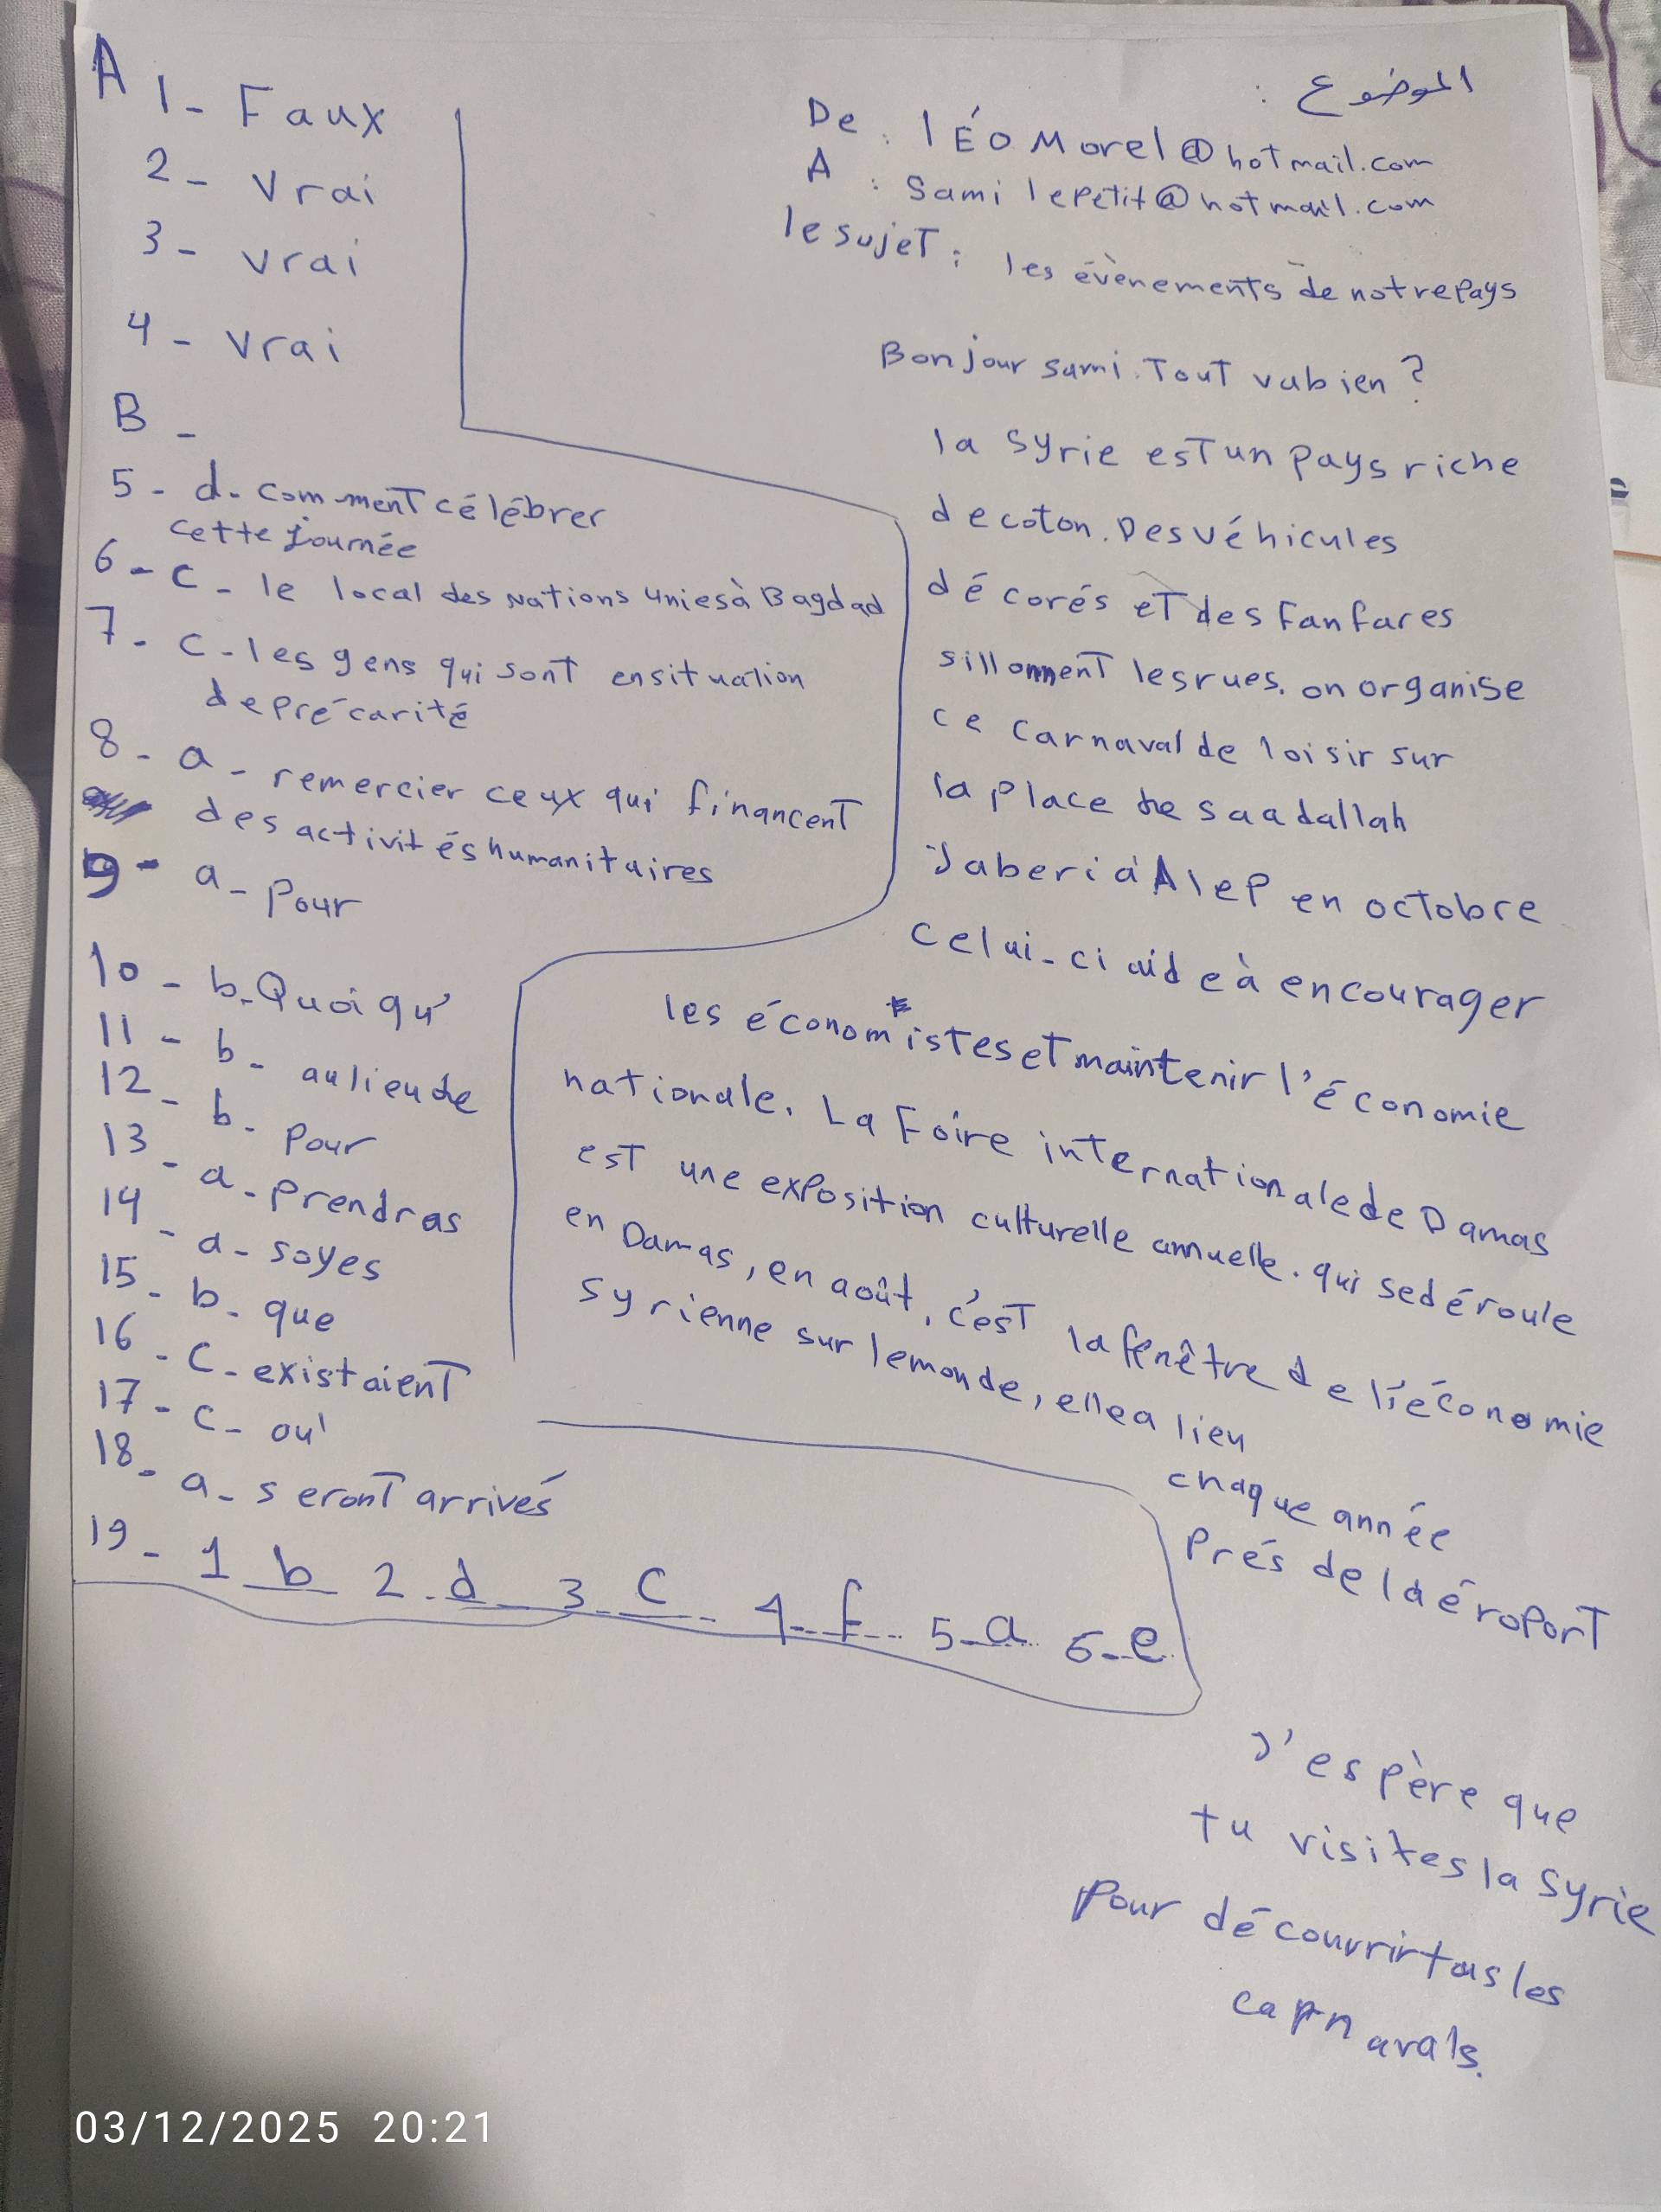 A
1- Faux
2- Vrai
3- vrai
4- vrai
B-
5- d- comment célébrer
cette journée
6- C- le local des Nations Unies à Bagdad
7- C- les gens qui sont en situation
de précarité
8- a- remercier ceux qui financent
des activités humanitaires
9- a- Pour
10- b- Quoi qu'
11- b- au lieu de
12- b- Pour
13- a- Prendras
14- a- soyes
15- b- que
16- C- existaient
17- C- où
18- a- seront arrivés
19- 1 b 2 d 3 C 4 f 5 a 6 e
الموضوع :
De : lÉo Morel@hotmail.com
A : Sami lepetit@hotmail.com
le sujet : les évènements de notre Pays
Bonjour sami. Tout va bien ?
la Syrie est un Pays riche
de coton. Des véhicules
décorés et des fanfares
sillonnent les rues. on organise
ce Carnaval de loisir sur
la place de saadallah
Jaberi à Alep en octobre
Celui-ci aide à encourager
les économistes et maintenir l'économie
nationale. La Foire internationale de Damas
est une exposition culturelle annuelle. qui se déroule
en Damas, en août, c'est la fenêtre de l'économie
Syrienne sur le monde, elle a lieu
chaque année
Prés de l'aéroport
J'espère que
tu visites la Syrie
Pour découvrir tous les
carnavals.
03/12/2025 20:21